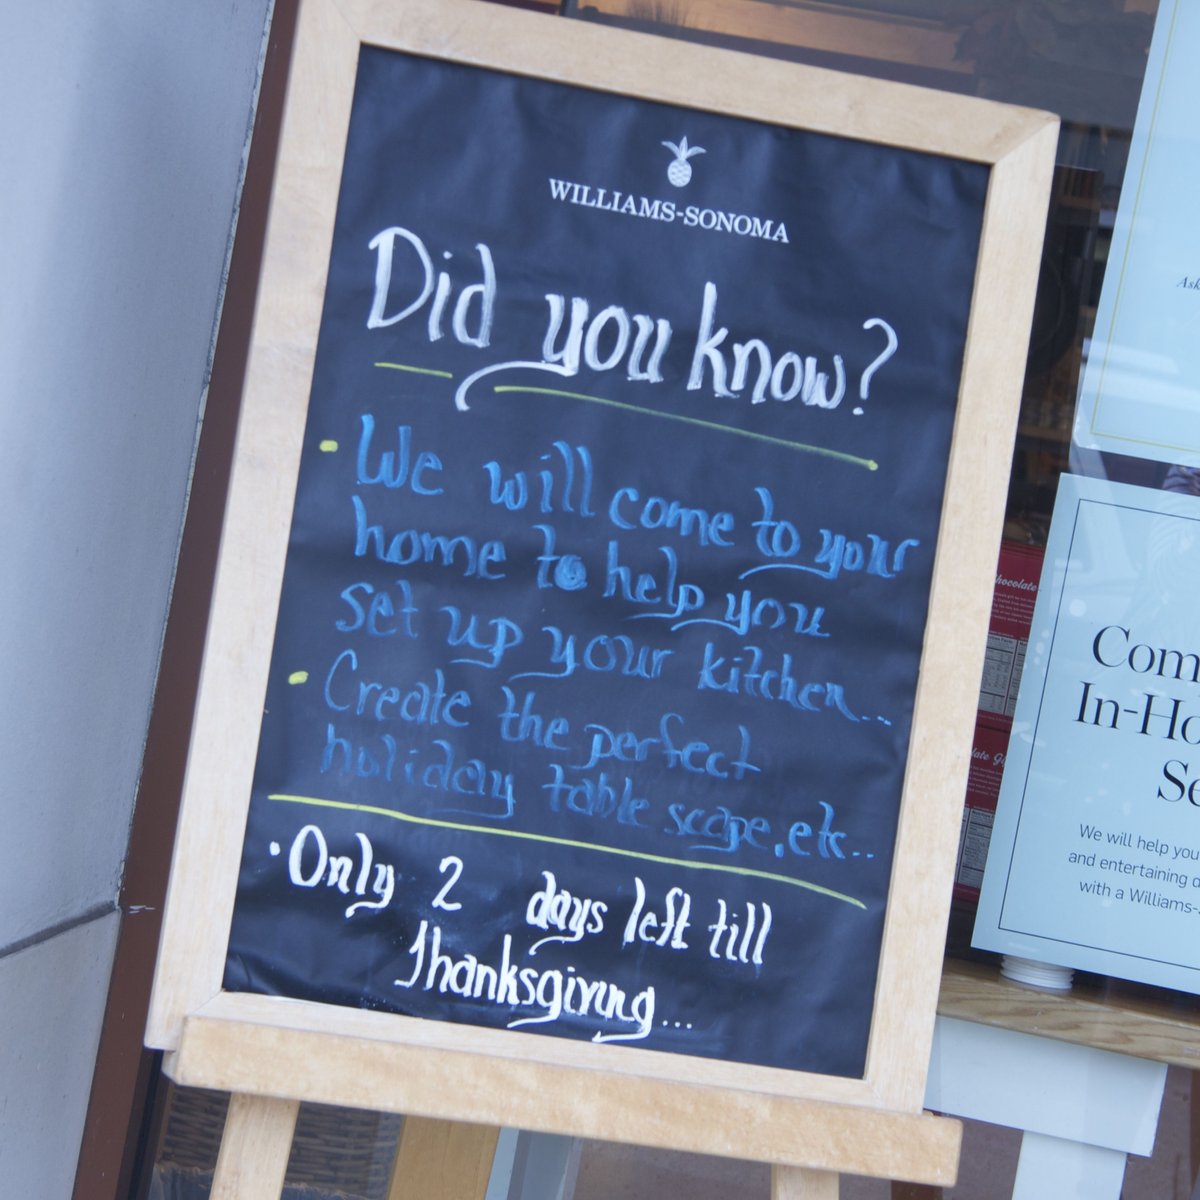 WILLIAMS-SONOMA
Did you know?
· We will come to your
home to help you
set up your kitchen...
· Create the perfect
holiday table scape, etc...
· Only 2 days left till
Thanksgiving...
Ask
hocolate
Com
In-Ho
Se
We will help you
and entertaining d
with a Williams-